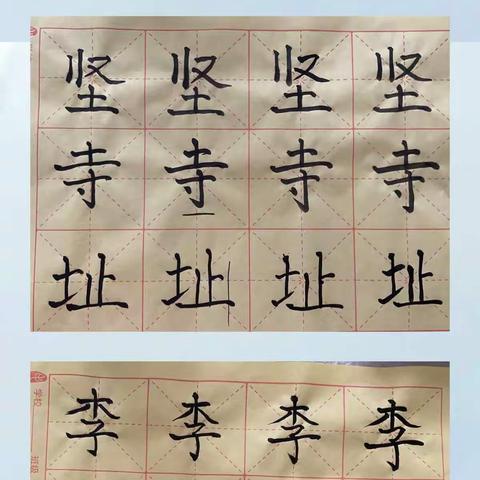 坚 坚 坚 坚
寺 寺 寺 寺
址 址 址 址
学校
李 李 李 李
班级